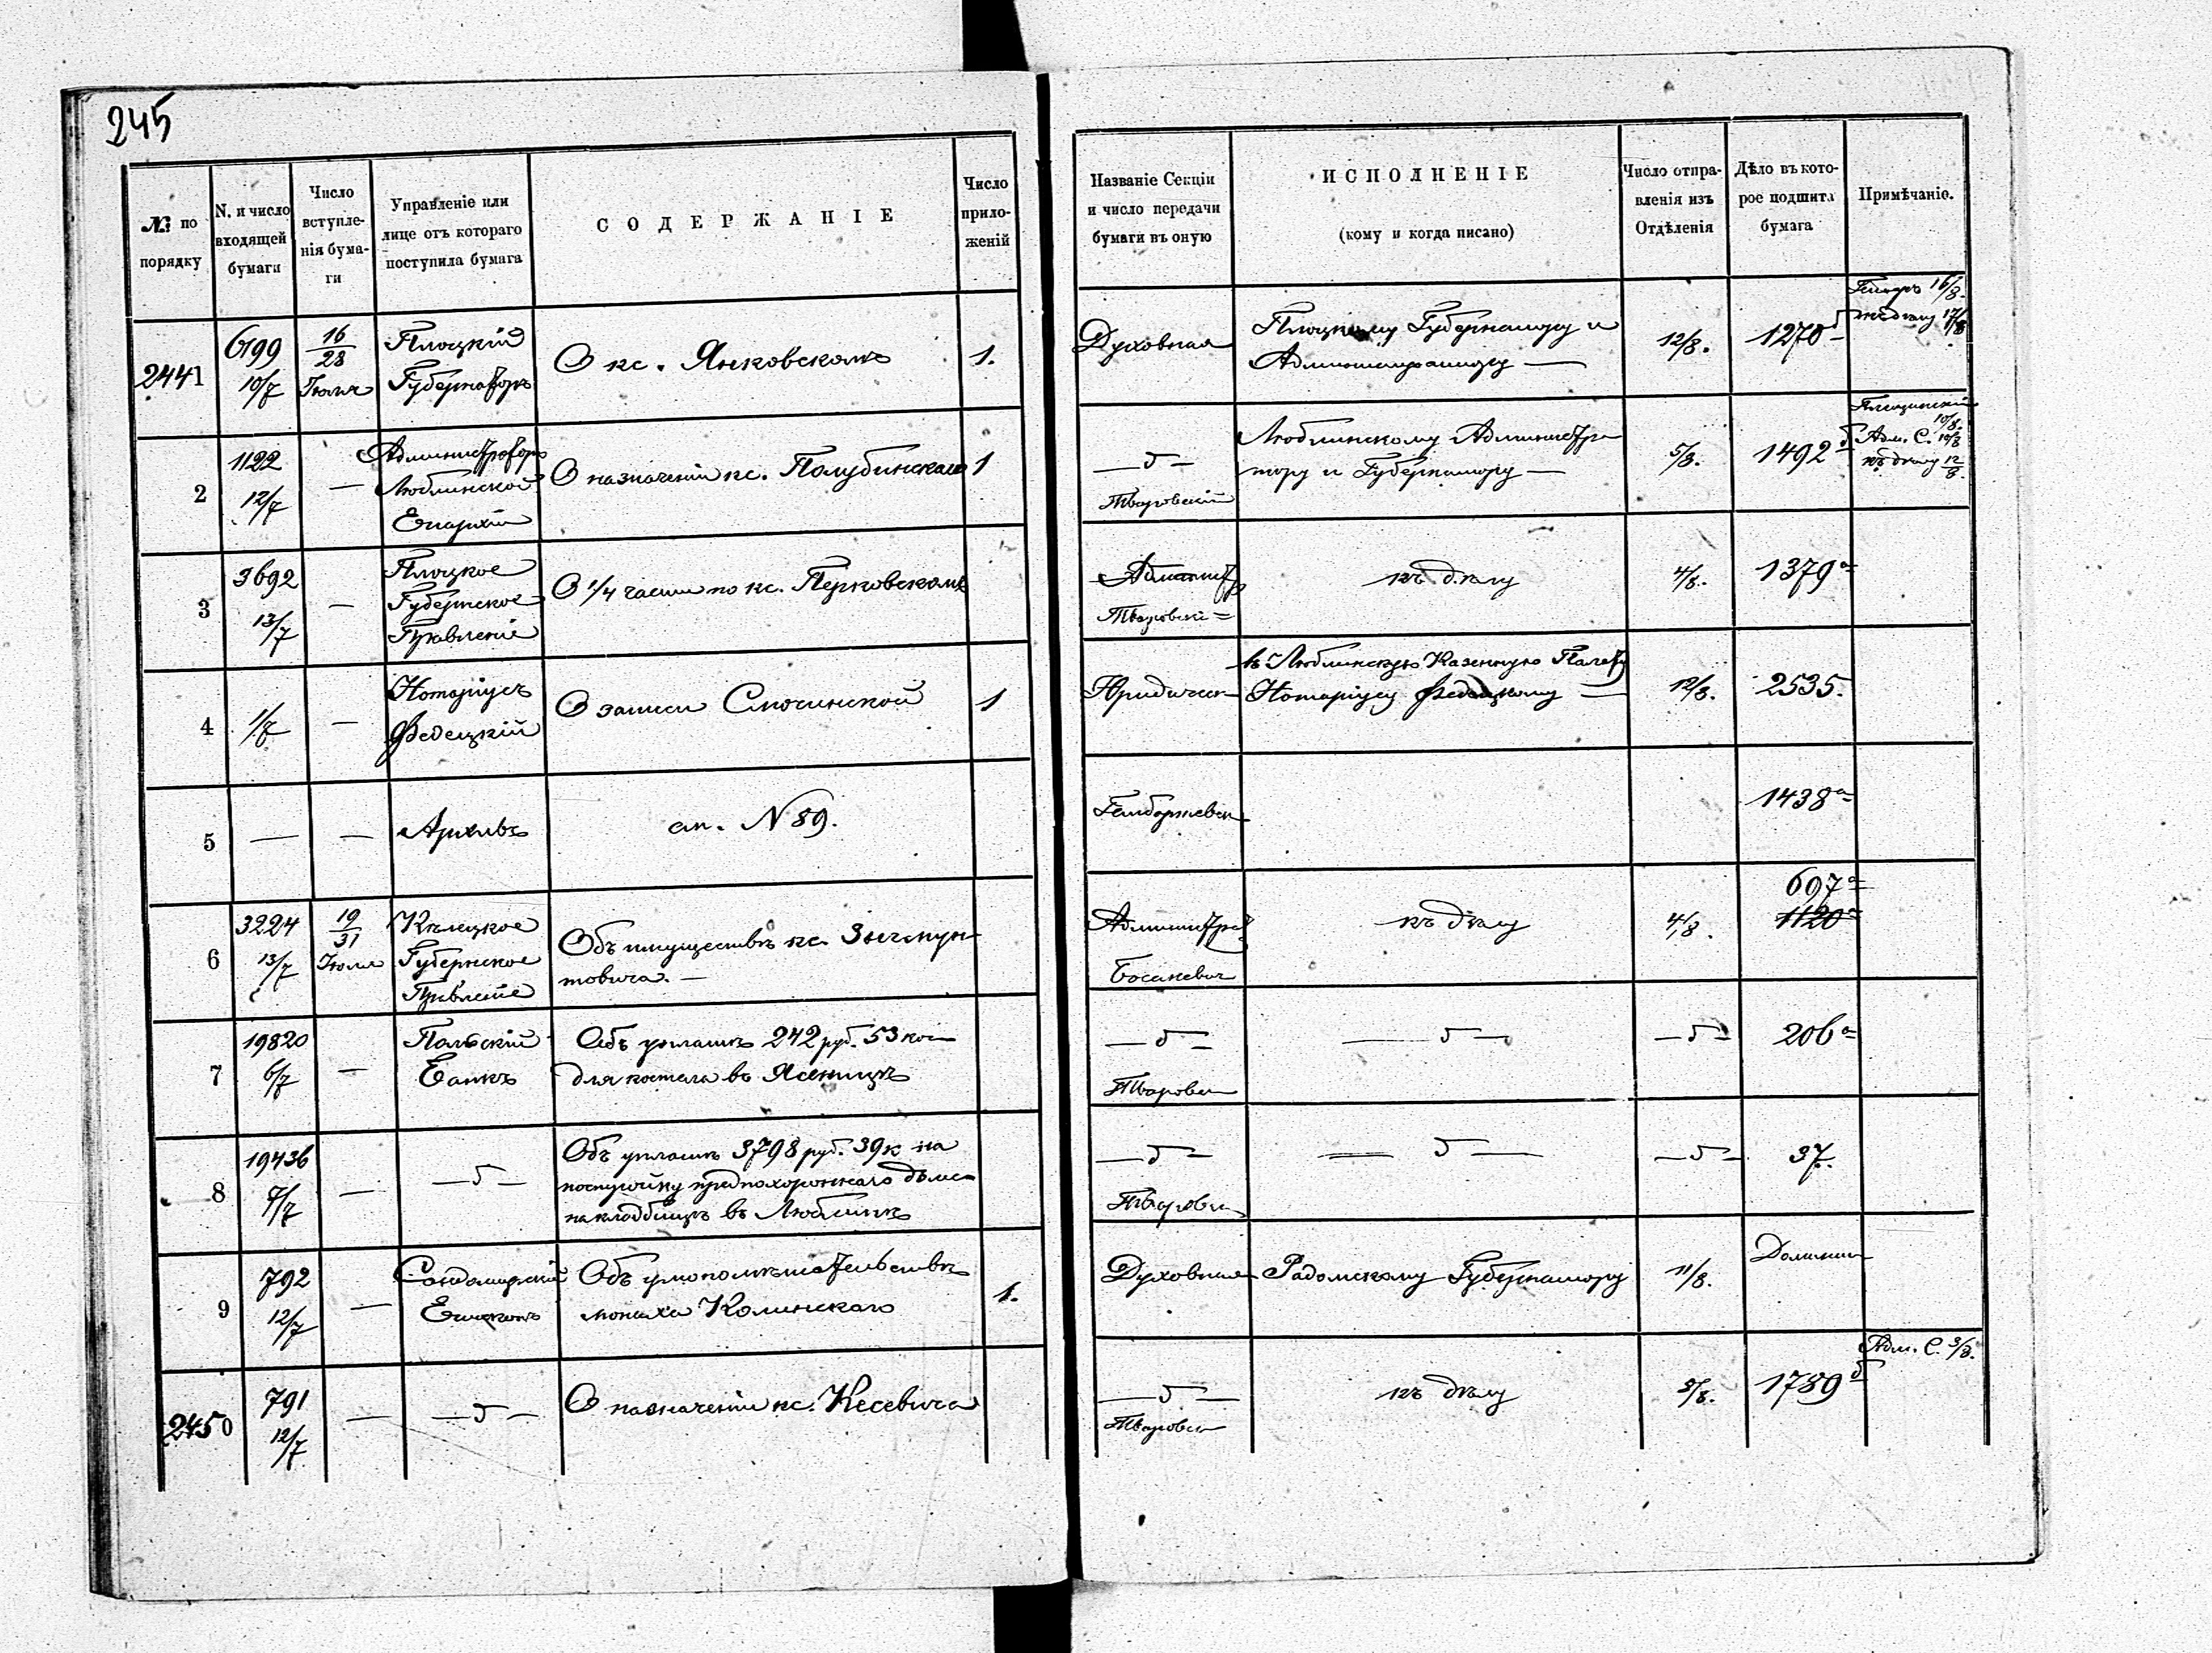 245
№ по порядку
N. и число входящей бумаги
Число вступленія бумаги
Управленіе или лице отъ котораго поступила бумага
СОДЕРЖАНІЕ
Число приложеній
Названіе Секціи и число передачи бумаги въ оную
ИСПОЛНЕНІЕ
(кому и когда писано)
Число отправленія изъ Отдѣленія
Дѣло въ которое подшита бумага
Примѣчаніе.
2441
6199
10/7
16/28
Іюля
Плоцкій
Губернаторъ
О кс. Янковскомъ
1.
Духовная
Плоцкому Губернатору и
Администратору —
12/8.
1270 б
16/8.
къ дѣлу 17/8
2
1122
12/7
—
Администраторъ
Люблинской
Епархіи
О назначеніи кс. Полубинскаго
1
— б —
Тваровскій
Люблинскому Администра-
тору и Губернатору —
5/8.
1492 б
10/8.
Адм. С. 10/8
къ дѣлу 12/8.
3
3692
13/7
—
Плоцкое
Губернское
Правленіе
О 1/4 части по кс. Перковскомъ
Администр
Тваровскі
къ дѣлу
4/8.
1379 а
4
1/7
—
Нотаріусъ
Федецкій
О записи Смочинской
1
Юридическ
въ Люблинскую Казенную Палату
Нотаріусу Федецкому —
12/8.
2535.
5
—
—
Архивъ
ап. N 89.
1438 а
6
3224
13/7
19/31
Іюля
Кѣлецкое
Губернское
Правленіе
Объ имуществѣ кс. Зыгмун-
товича. —
Администра
къ дѣлу
4/8.
697 а
1120
7
19820
6/7
—
Польскій
Банкъ
Объ уплатѣ 242 руб. 53 коп
для костела въ Ясеницѣ
— б —
Тваровск
— б —
— б —
206 а
8
19436
7/7
—
— б —
Объ уплатѣ 3798 руб. 39 к на
постройку предпохороннаго дома
на кладбищѣ въ Люблинѣ
— б —
Тваровск
— б —
— б —
37.
9
792
12/7
—
Сандомирскій
Епископъ
Объ умопомѣшательствѣ
монаха Колинскаго
1.
Духовная
Радомскому Губернатору
11/8.
2450
791
12/7
—
— б —
О назначеніи кс. Кесевича
— б —
Тваровск
къ дѣлу
5/8.
1789 б
Адм. С. 3/8.